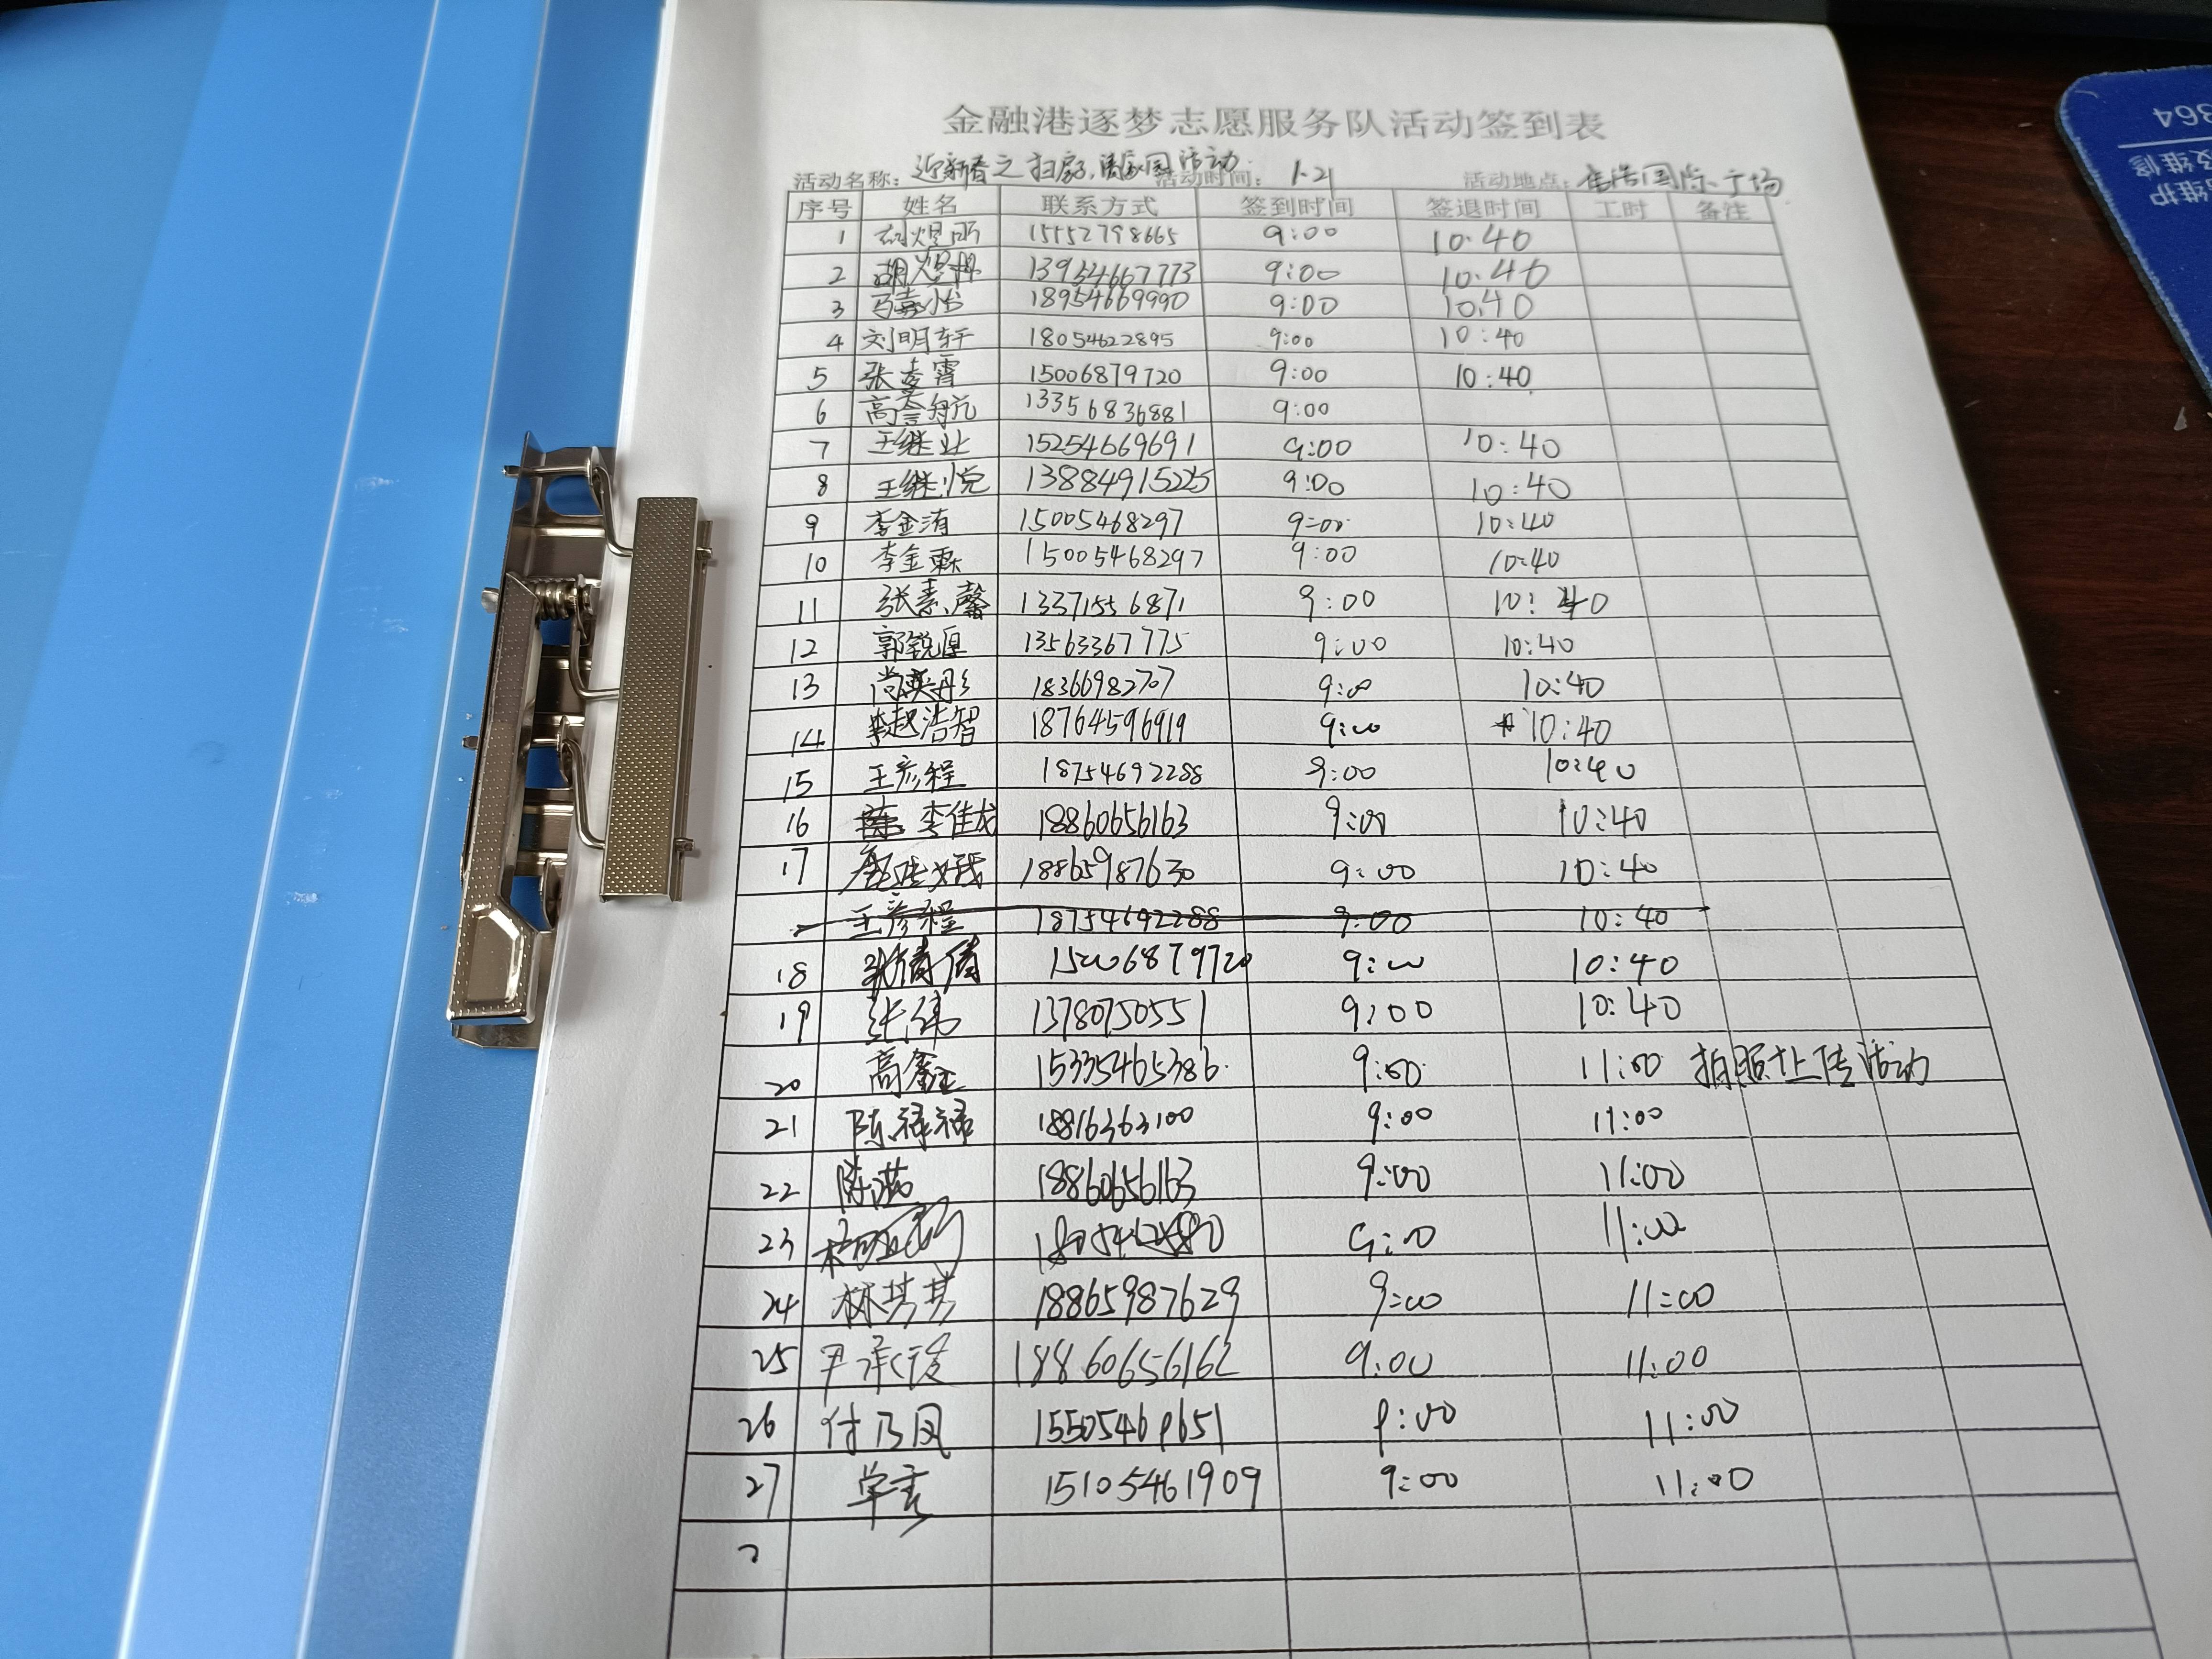 金融港逐梦志愿服务队活动签到表
活动名称：迎新春之 活动 活动时间：1.21 活动地点： 国际广场
序号 姓名 联系方式 签到时间 签退时间 工时 备注
1 15552798665 9:00 10:40
2 13954667773 9:00 10:40
3 马嘉怡 18954669990 9:00 10:40
4 刘明轩 18054622895 9:00 10:40
5 张 霄 15006879720 9:00 10:40
6 高誉航 13356836881 9:00
7 王继业 15254669691 9:00 10:40
8 王继悦 13884915225 9:00 10:40
9 李金洧 15005468297 9:00 10:40
10 李金霖 15005468297 9:00 10:40
11 张素馨 13371556871 9:00 10:40
12 郭锐厚 13563367775 9:00 10:40
13 尚奕彤 18366982707 9:00 10:40
14 赵浩智 18764596919 9:00 10:40
15 王彦程 18754692288 9:00 10:40
16 李佳成 18860656163 9:00 10:40
17 18865987630 9:00 10:40
王彦程 18754692288 9:00 10:40
18 张倩倩 15006879720 9:00 10:40
19 张伟 13780750551 9:00 10:40
20 高鑫 15335465386 9:00 11:00 拍照上传活动
21 陈禄禄 18816363100 9:00 11:00
22 陈 18860656163 9:00 11:00
23 9:00 11:00
24 林芳芳 18865987629 9:00 11:00
25 尹承 18860656162 9:00 11:00
26 付乃凤 9:00 11:00
27 15105461909 9:00 11:00
364
维护
及维修